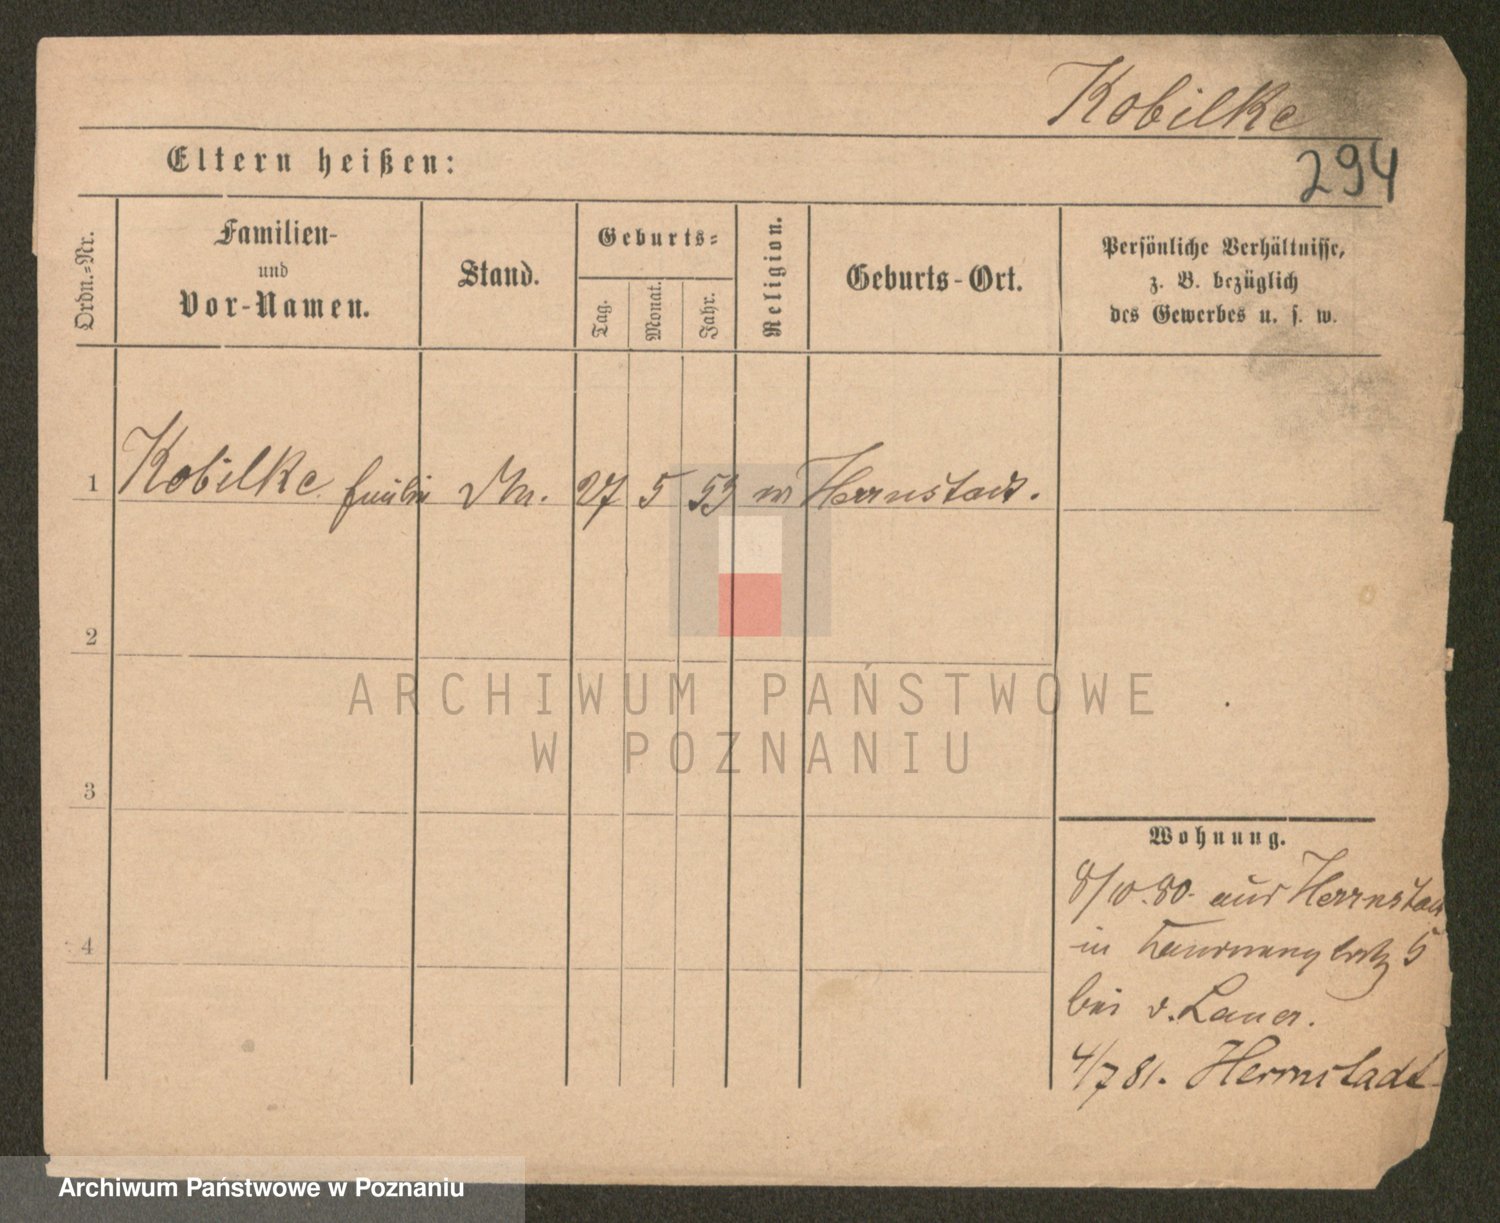 Kobilke
294
Eltern heißen:
Ordn.-Nr.
Familien-
und
Vor-Namen.
Stand.
Geburts-
Tag.
Monat.
Jahr.
Religion.
Geburts-Ort.
Persönliche Verhältnisse,
z. B. bezüglich
des Gewerbes u. s. w.
1 Kobilke 27 5 53 Herrnstadt.
2
3
4
ARCHIWUM PAŃSTWOWE
W POZNANIU
Wohnung.
8/10.80. aus Herrnstadt
in 5
bei v. Lauer.
4/7 81. Herrnstadt
Archiwum Państwowe w Poznaniu